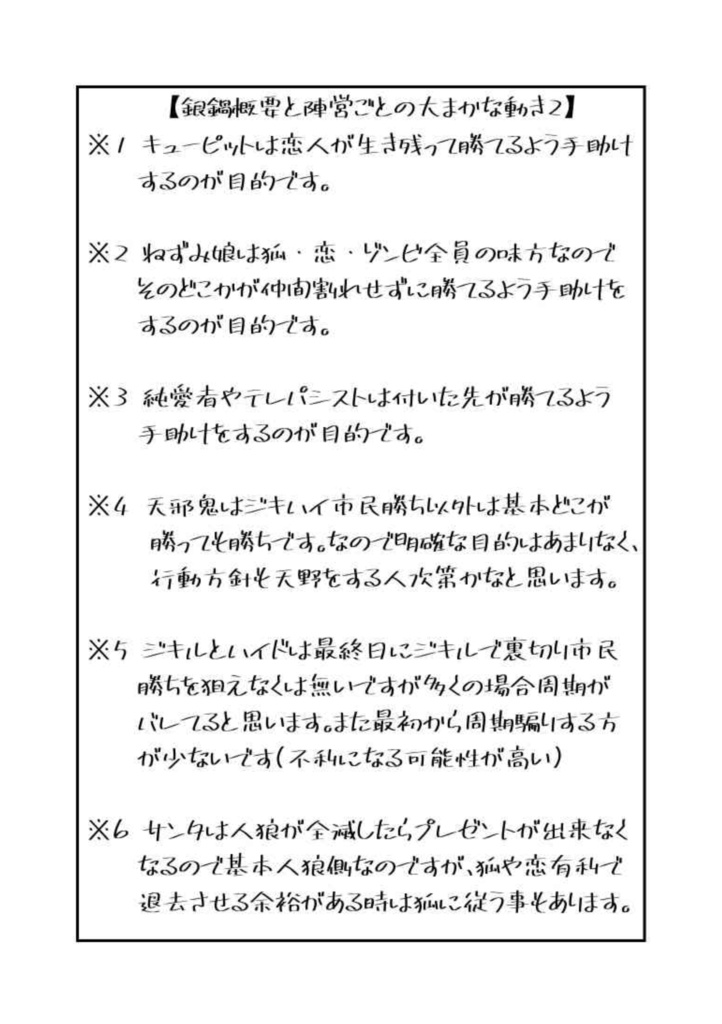 【銀鍋概要と陣営ごとの大まかな動き2】
※1 キューピットは恋人が生き残って勝てるよう手助け
するのが目的です。
※2 ねずみ娘は狐・恋・ゾンビ全員の味方なので
そのどこかが仲間割れせずに勝てるよう手助けを
するのが目的です。
※3 純愛者やテレパシストは付いた先が勝てるよう
手助けをするのが目的です。
※4 天邪鬼はジキハイ市民勝ち以外は基本どこが
勝っても勝ちです。なので明確な目的はあまりなく、
行動方針も天野をする人次第かなと思います。
※5 ジキルとハイドは最終日にジキルで裏切り市民
勝ちを狙えなくは無いですが多くの場合周期が
バレてると思います。また最初から周期騙りする方
が少ないです(不利になる可能性が高い)
※6 サンタは人狼が全滅したらプレゼントが出来なく
なるので基本人狼側なのですが、狐や恋有利で
退去させる余裕がある時は狐に従う事もあります。